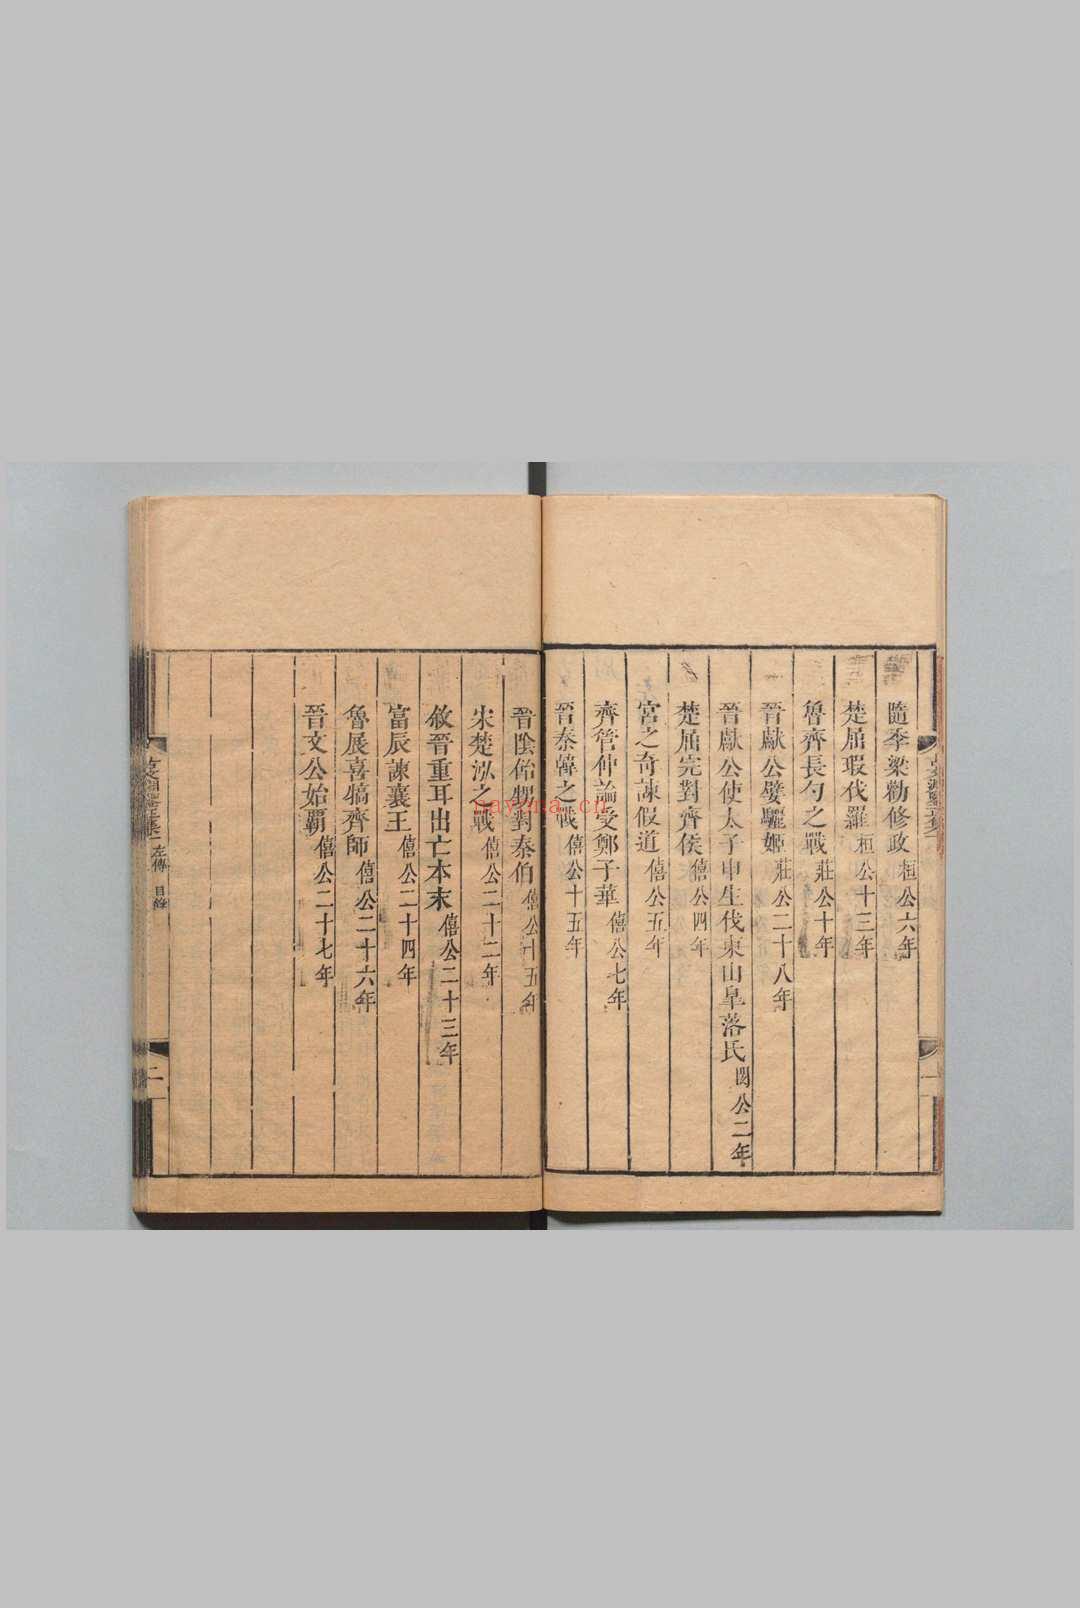 隨季梁勸修政 桓公六年
楚屈瑕伐羅 桓公十三年
魯齊長勺之戰 莊公十年
晉獻公嬖驪姬 莊公二十八年
晉獻公使太子申生伐東山皐落氏 閔公二年
楚屈完對齊侯 僖公四年
宮之奇諫假道 僖公五年
齊管仲論受鄭子華 僖公七年
晉秦韓之戰 僖公十五年
晉陰飴甥對秦伯 僖公十五年
宋楚泓之戰 僖公二十二年
敘晉重耳出亡本末 僖公二十三年
富辰諫襄王 僖公二十四年
魯展喜犒齊師 僖公二十六年
晉文公始覇 僖公二十七年
左傳 目錄
二
nayona.cn